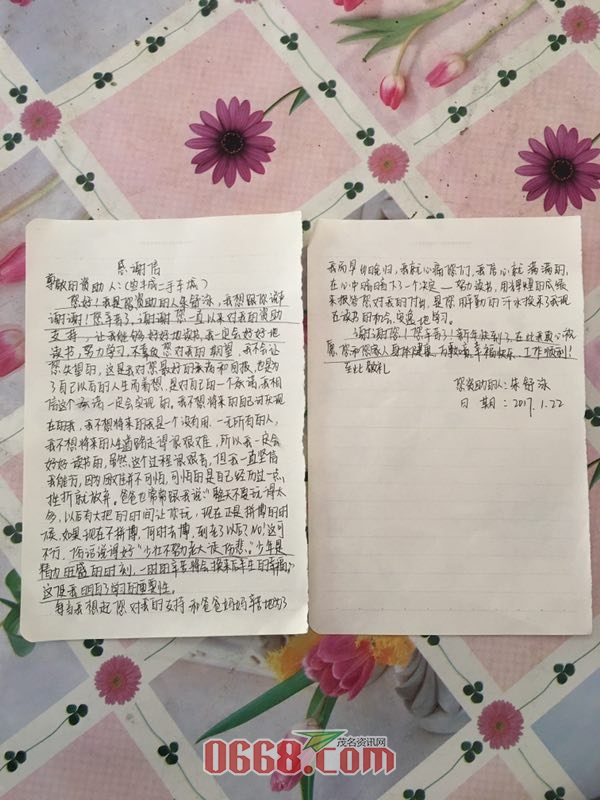 感谢信
尊敬的资助人:(空手城二手车城)
您好!我是您资助的人朱舒泳,我想跟您说声
谢谢!您辛苦了,谢谢您一直以来对我的资助
支持,让我能够好好地读书,我一定会好好地
读书,努力学习,不辜负您对我的期望,我不会让
您失望的,这是我对您最好的表而和回报,也是为
了自己以后的人生而着想,是对自己的一个承诺,我相
信这个承诺一定会实现的。我不想将来的自己讨厌现
在的我,我不想将来的我是一个没有用、一无所有的人,
我不想将来的人生道路走得很艰难,所以我一定会
好好读书的,虽然,这个过程很艰苦,但我一直坚信
我能行,因为困难并不可怕,可怕的是自己经历过一点
挫折就放弃。爸爸也常常跟我说"整天不要玩得太
多,以后有大把的时间让你玩,现在正是拼搏的时
候,如果现在不拼搏,何时去博,到老了以后?No!这可
不行,俗话说得好"少壮不努力老大徒伤悲。"少年是
精力旺盛的时刻,一时的辛苦将会换来后半生的幸福"
这使我明白了学习的重要性。
每当我想起您对我的支持和爸爸妈妈辛苦地为了
我而早出晚归,我就心痛你们,我信心就满满的,
在心中暗暗下了一个决定——努力读书,用辉煌的成绩
来报答您对我的付出,是您用辛勤的汗水换来了我现
在读书的机会,学习。
谢谢您!您辛苦了!新年快到了,在此我衷心祝
愿:您和您家人身体健康、万事如意、幸福快乐、工作顺利!
至此敬礼
您资助的人:朱舒泳
日 期:2017.1.22
茂名资讯网
0668.com